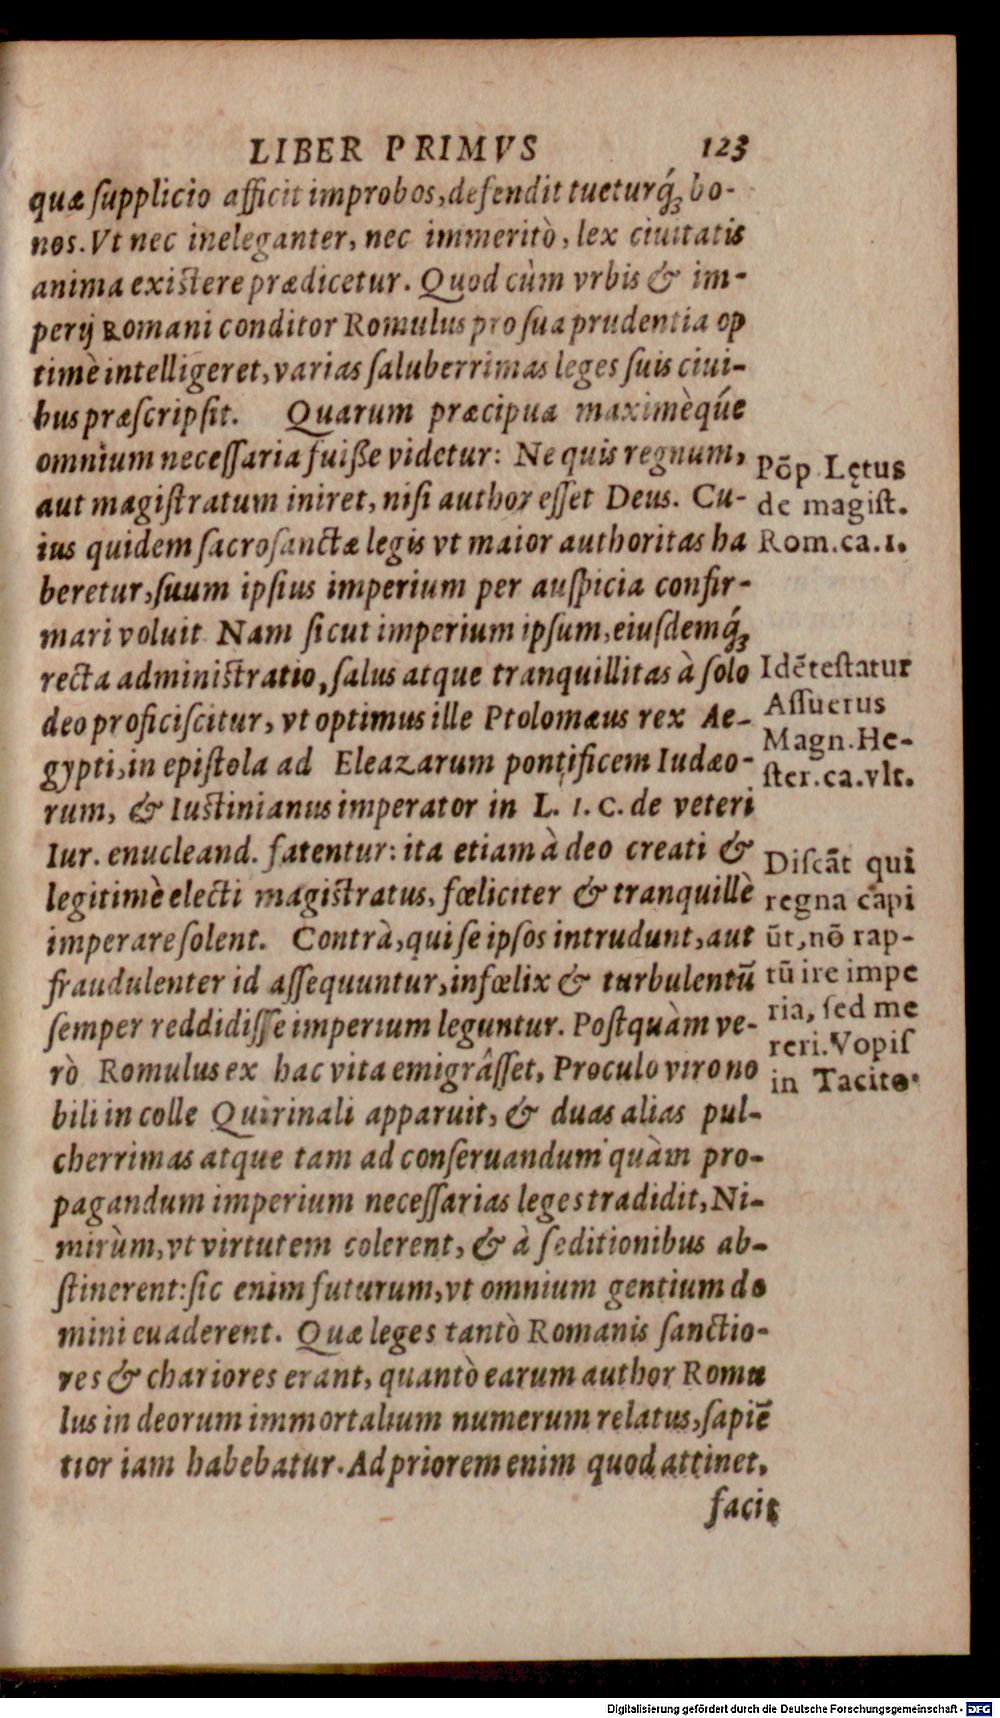 LIBER PRIMVS 123
quæ ſupplicio afficit improbos, defendit tueturq́ꝫ bo-
nos. Vt nec ineleganter, nec immeritò, lex ciuitatis
anima exiſtere prædicetur. Quod cùm vrbis & im-
perij Romani conditor Romulus pro ſua prudentia op
timè intelligeret, varias ſaluberrimas leges ſuis ciui-
bus præſcripſit. Quarum præcipua maximèq́ue
omnium neceſſaria fuiſſe videtur: Ne quis regnum,
aut magiſtratum iniret, niſi author eſſet Deus. Cu-
ius quidem ſacroſanctæ legis vt maior authoritas ha
beretur, ſuum ipſius imperium per auſpicia confir-
mari voluit. Nam ſicut imperium ipſum, eiuſdemq́ꝫ
recta adminiſtratio, ſalus atque tranquillitas à ſolo
deo proficiſcitur, vt optimus ille Ptolomæus rex Ae-
gypti, in epiſtola ad Eleazarum pontificem Iudæo-
rum, & Iuſtinianus imperator in L. 1. C. de veteri
Iur. enucleand. fatentur: ita etiam à deo creati &
legitimè electi magiſtratus, fœliciter & tranquillè
imperare ſolent. Contrà, qui ſe ipſos intrudunt, aut
fraudulenter id aſſequuntur, infœlix & turbulentū
ſemper reddidiſſe imperium leguntur. Poſtquàm ve-
rò Romulus ex hac vita emigrâſſet, Proculo viro no
bili in colle Quirinali apparuit, & duas alias pul-
cherrimas atque tam ad conſeruandum quàm pro-
pagandum imperium neceſſarias leges tradidit, Ni-
mirùm, vt virtutem colerent, & à ſeditionibus ab-
ſtinerent: ſic enim futurum, vt omnium gentium do
mini euaderent. Quæ leges tantò Romanis ſanctio-
res & chariores erant, quantò earum author Romu
lus in deorum immortalium numerum relatus, ſapiē
tior iam habebatur. Ad priorem enim quod attinet,
facit
Pōp Lętus
de magiſt.
Rom.ca.1.
Idēteſtatur
Aſſuerus
Magn.He-
ſter.ca.vlt.
Diſcāt qui
regna capi
ūt, nō rap-
tū ire impe
ria, ſed me
reri. Vopiſ
in Tacito.
Digitalisierung gefördert durch die Deutsche Forschungsgemeinschaft - DFG